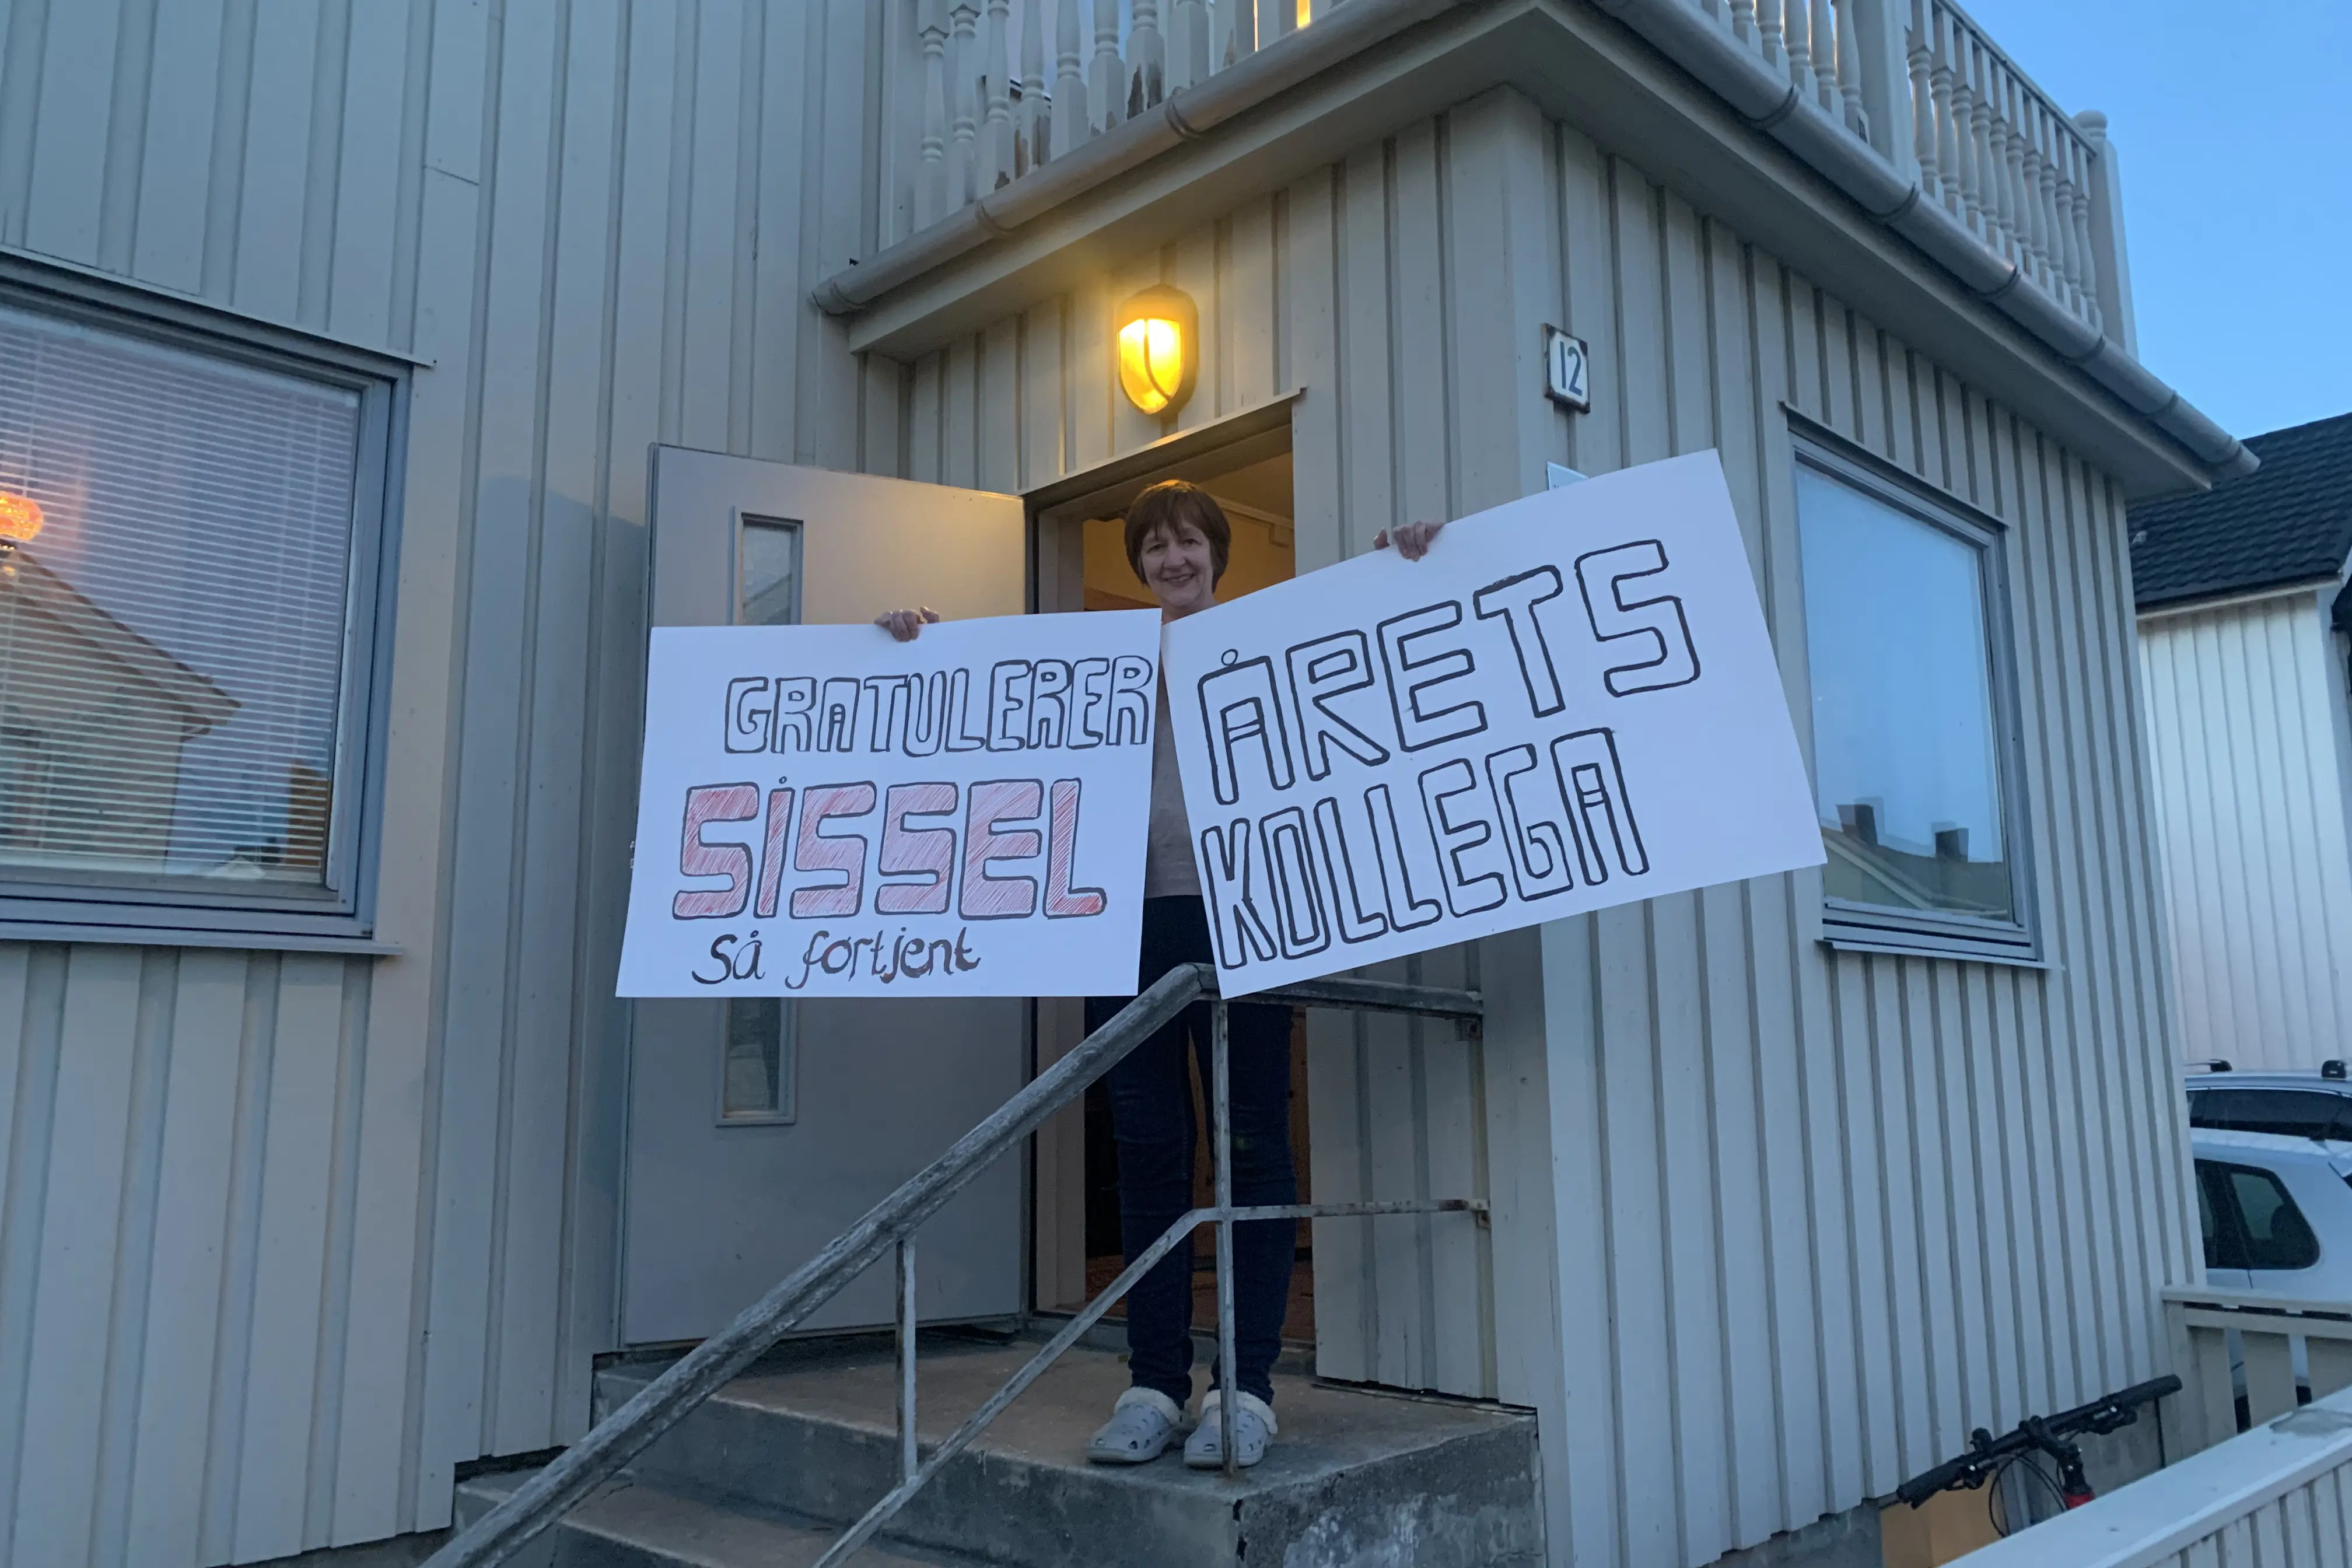 12
GRATULERER
SISSEL
Så fortjent
ÅRETS
KOLLEGA